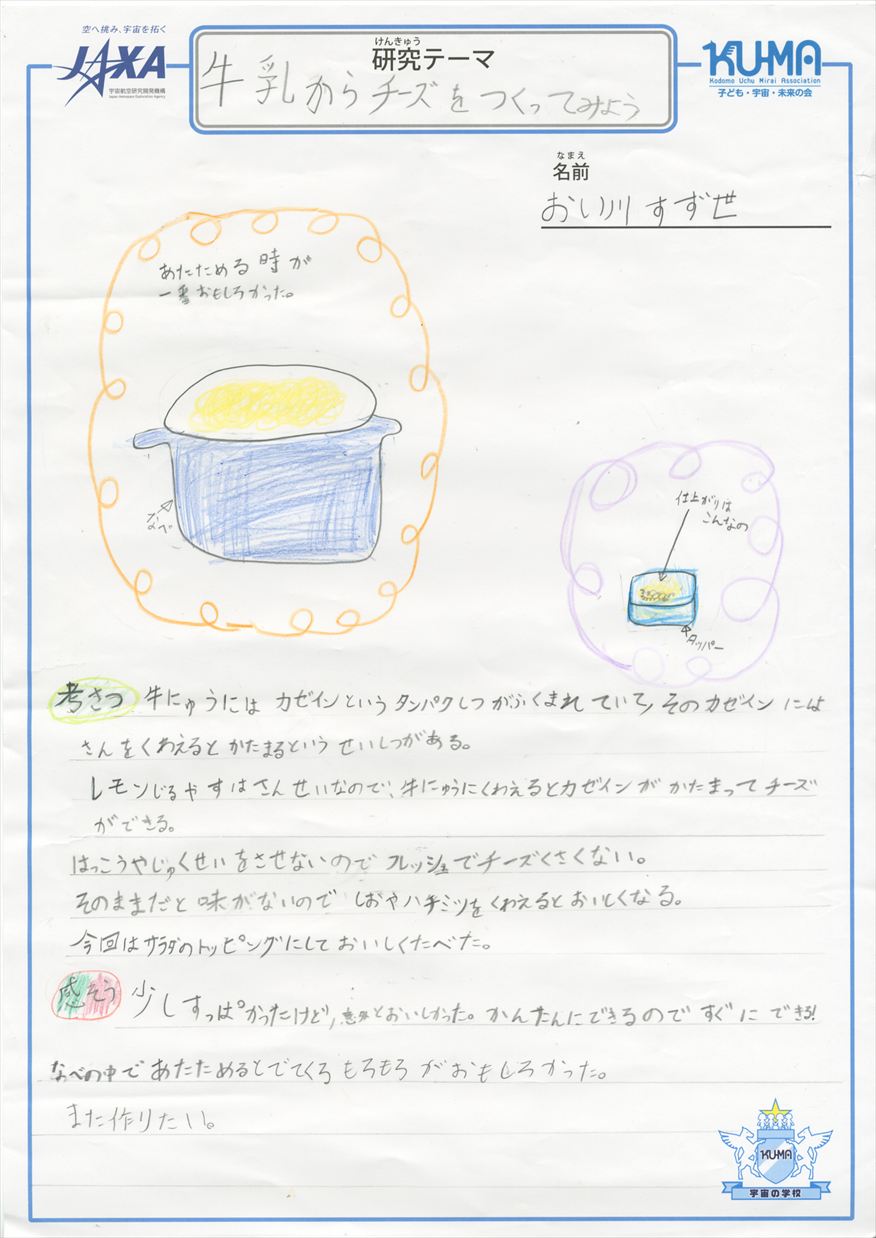 空へ挑み、宇宙を拓く
JAXA
宇宙航空研究開発機構
Japan Aerospace Exploration Agency
けんきゅう
研究テーマ
牛乳からチーズをつくってみよう
KU-MA
Kodomo Uchu Mirai Association
子ども・宇宙・未来の会
なまえ
名前
おい川すず世
あたためる時が
一番おもしろかった。
なべ
仕上がりは
こんなの
タッパー
考さつ 牛にゅうにはカゼインというタンパクしつがふくまれていて、そのカゼインには
さんをくわえるとかたまるというせいしつがある。
レモンじるやすはさんせいなので、牛にゅうにくわえるとカゼインがかたまってチーズ
ができる。
はっこうやじゅくせいをさせないのでフレッシュでチーズくさくない。
そのままだと味がないのでしおやハチミツをくわえるとおいしくなる。
今回はサラダのトッピングにしておいしくたべた。
感そう 少しすっぱかったけど、意外とおいしかった。かんたんにできるのですぐにできる!
なべの中であたためるとでてくるもろもろがおもしろかった。
また作りたい。
KU-MA
宇宙の学校